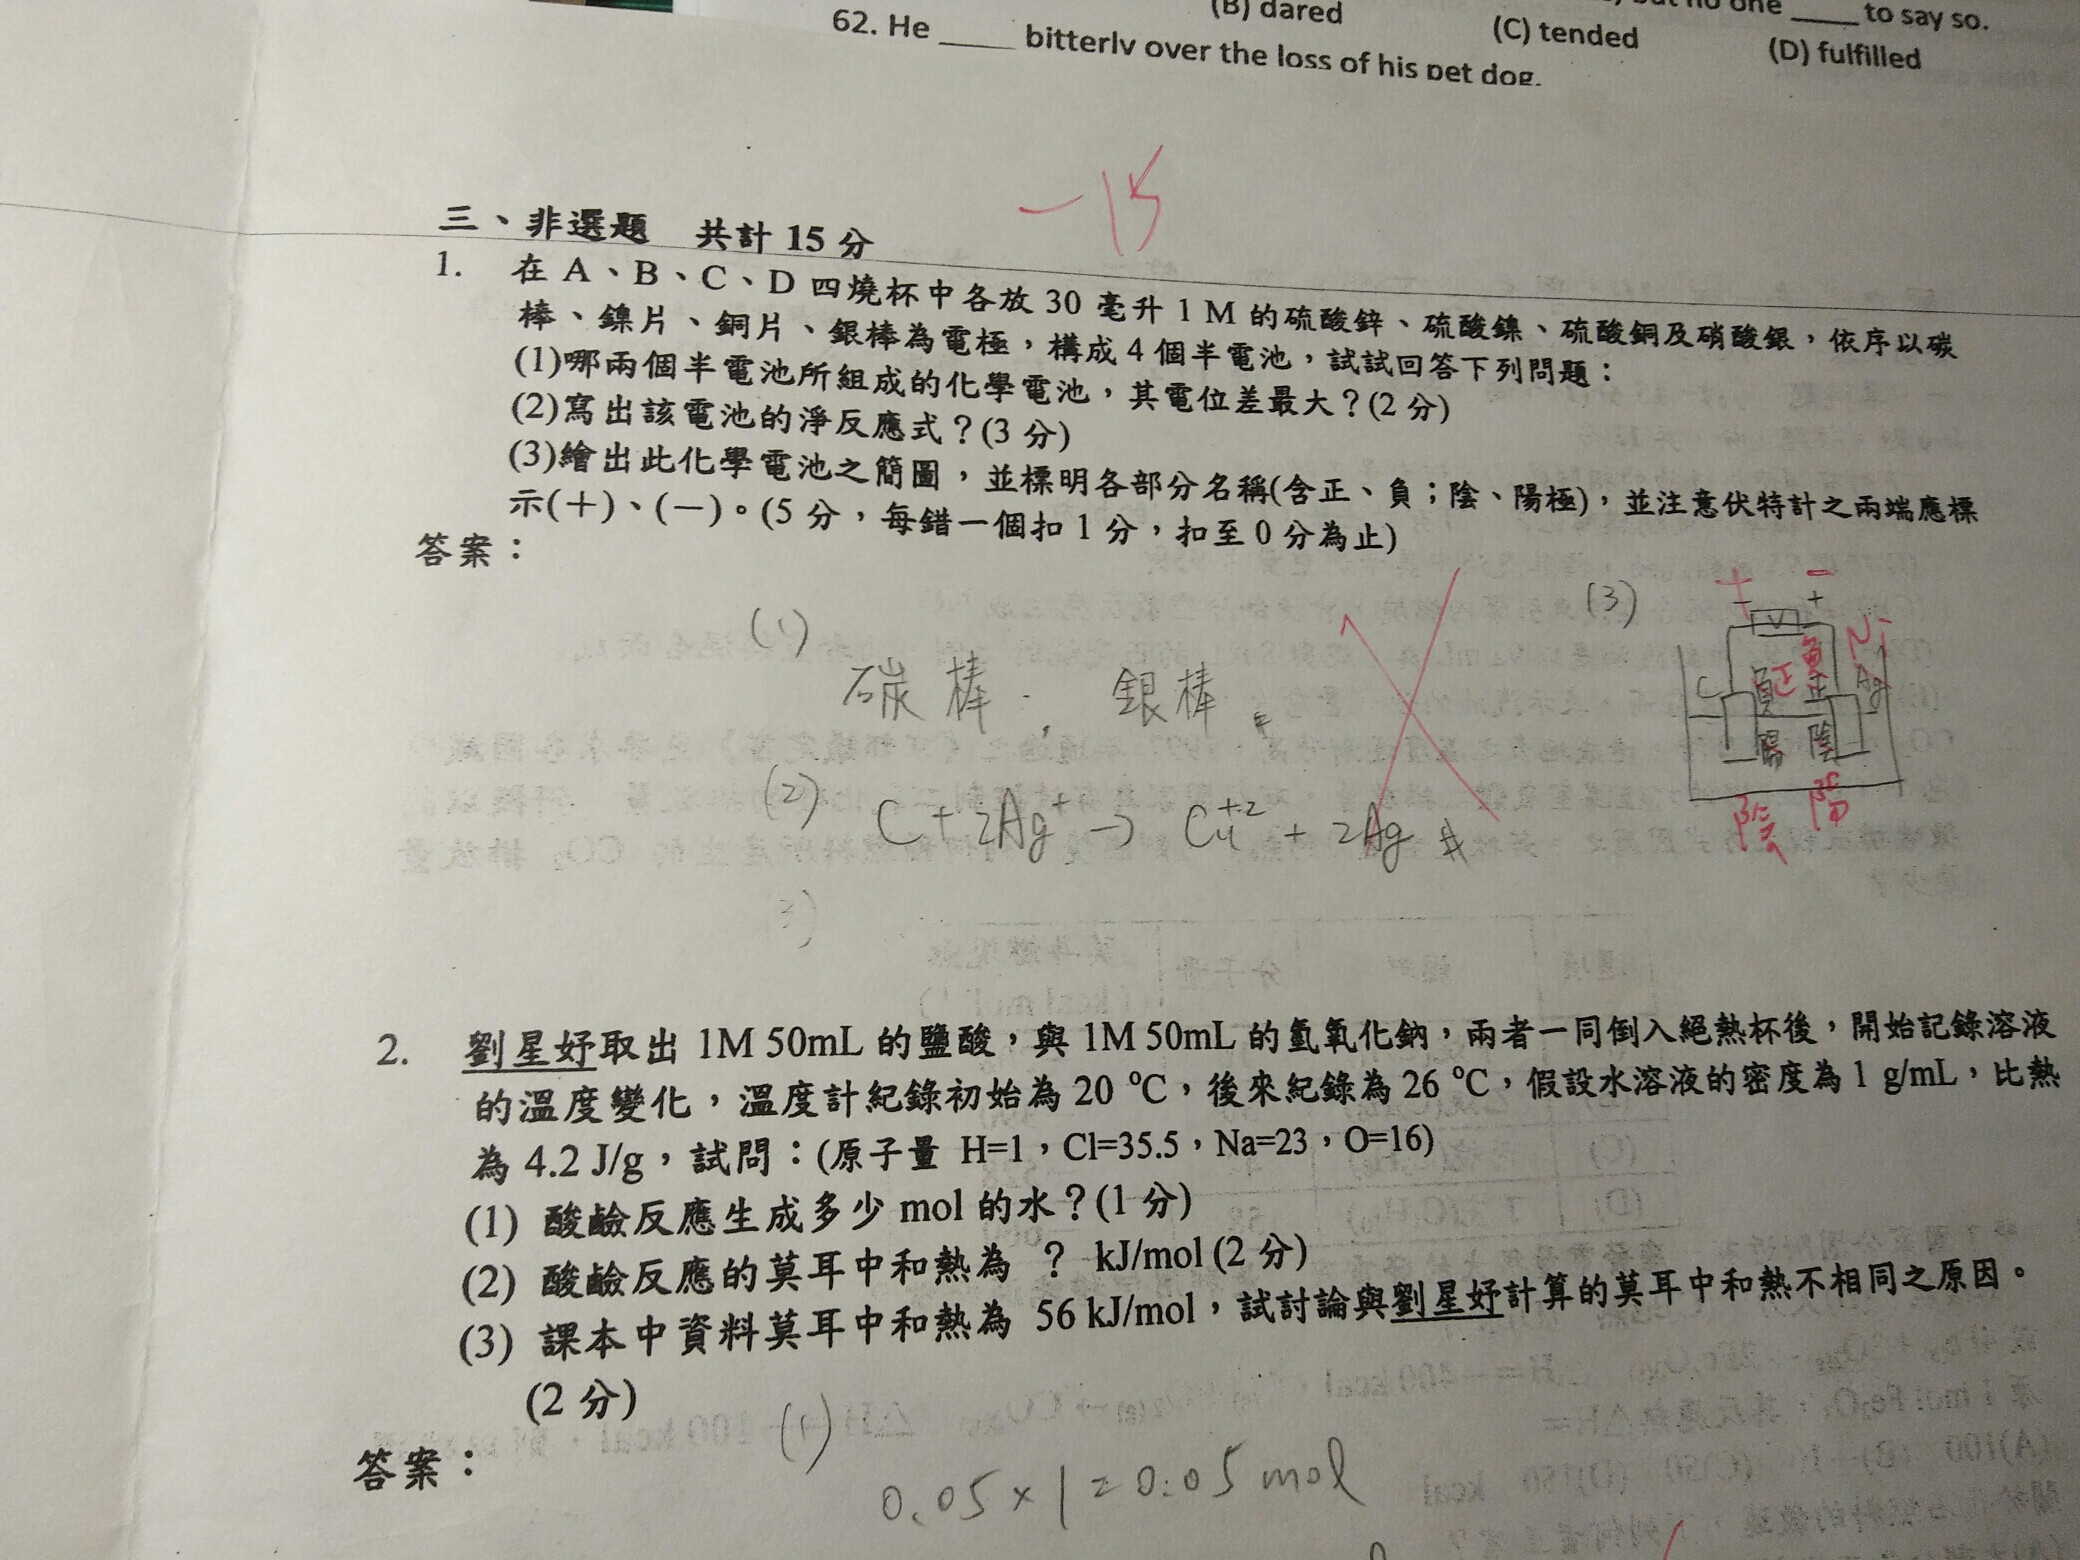 to say so.
(B) dared
(C) tended
(D) fulfilled
62. He ____ bitterly over the loss of his pet dog.
-15
三、非選題 共計 15 分
1. 在 A、B、C、D 四燒杯中各放 30 毫升 1 M 的硫酸鋅、硫酸鎳、硫酸銅及硝酸銀,依序以碳
棒、鎳片、銅片、銀棒為電極,構成 4 個半電池,試試回答下列問題:
(1)哪兩個半電池所組成的化學電池,其電位差最大?(2 分)
(2)寫出該電池的淨反應式?(3 分)
(3)繪出此化學電池之簡圖,並標明各部分名稱(含正、負;陰、陽極),並注意伏特計之兩端應標
示(+)、(-)。(5 分,每錯一個扣 1 分,扣至 0 分為止)
答案:
(1)
碳棒, 銀棒
(2) C + 2Ag⁺ → Cu⁺² + 2Ag #
(3)
+ -
- +
V
Ni
負
C 負 正 正 Ag
陽 陰
陰 陽
3)
2. 劉星妤取出 1M 50mL 的鹽酸,與 1M 50mL 的氫氧化鈉,兩者一同倒入絕熱杯後,開始記錄溶液
的溫度變化,溫度計紀錄初始為 20 ℃,後來紀錄為 26 ℃,假設水溶液的密度為 1 g/mL,比熱
為 4.2 J/g,試問:(原子量 H=1,Cl=35.5,Na=23,O=16)
(1) 酸鹼反應生成多少 mol 的水?(1 分)
(2) 酸鹼反應的莫耳中和熱為 ? kJ/mol (2 分)
(3) 課本中資料莫耳中和熱為 56 kJ/mol,試討論與劉星妤計算的莫耳中和熱不相同之原因。
(2 分)
答案:
(1)
0.05 × 1 = 0.05 mol